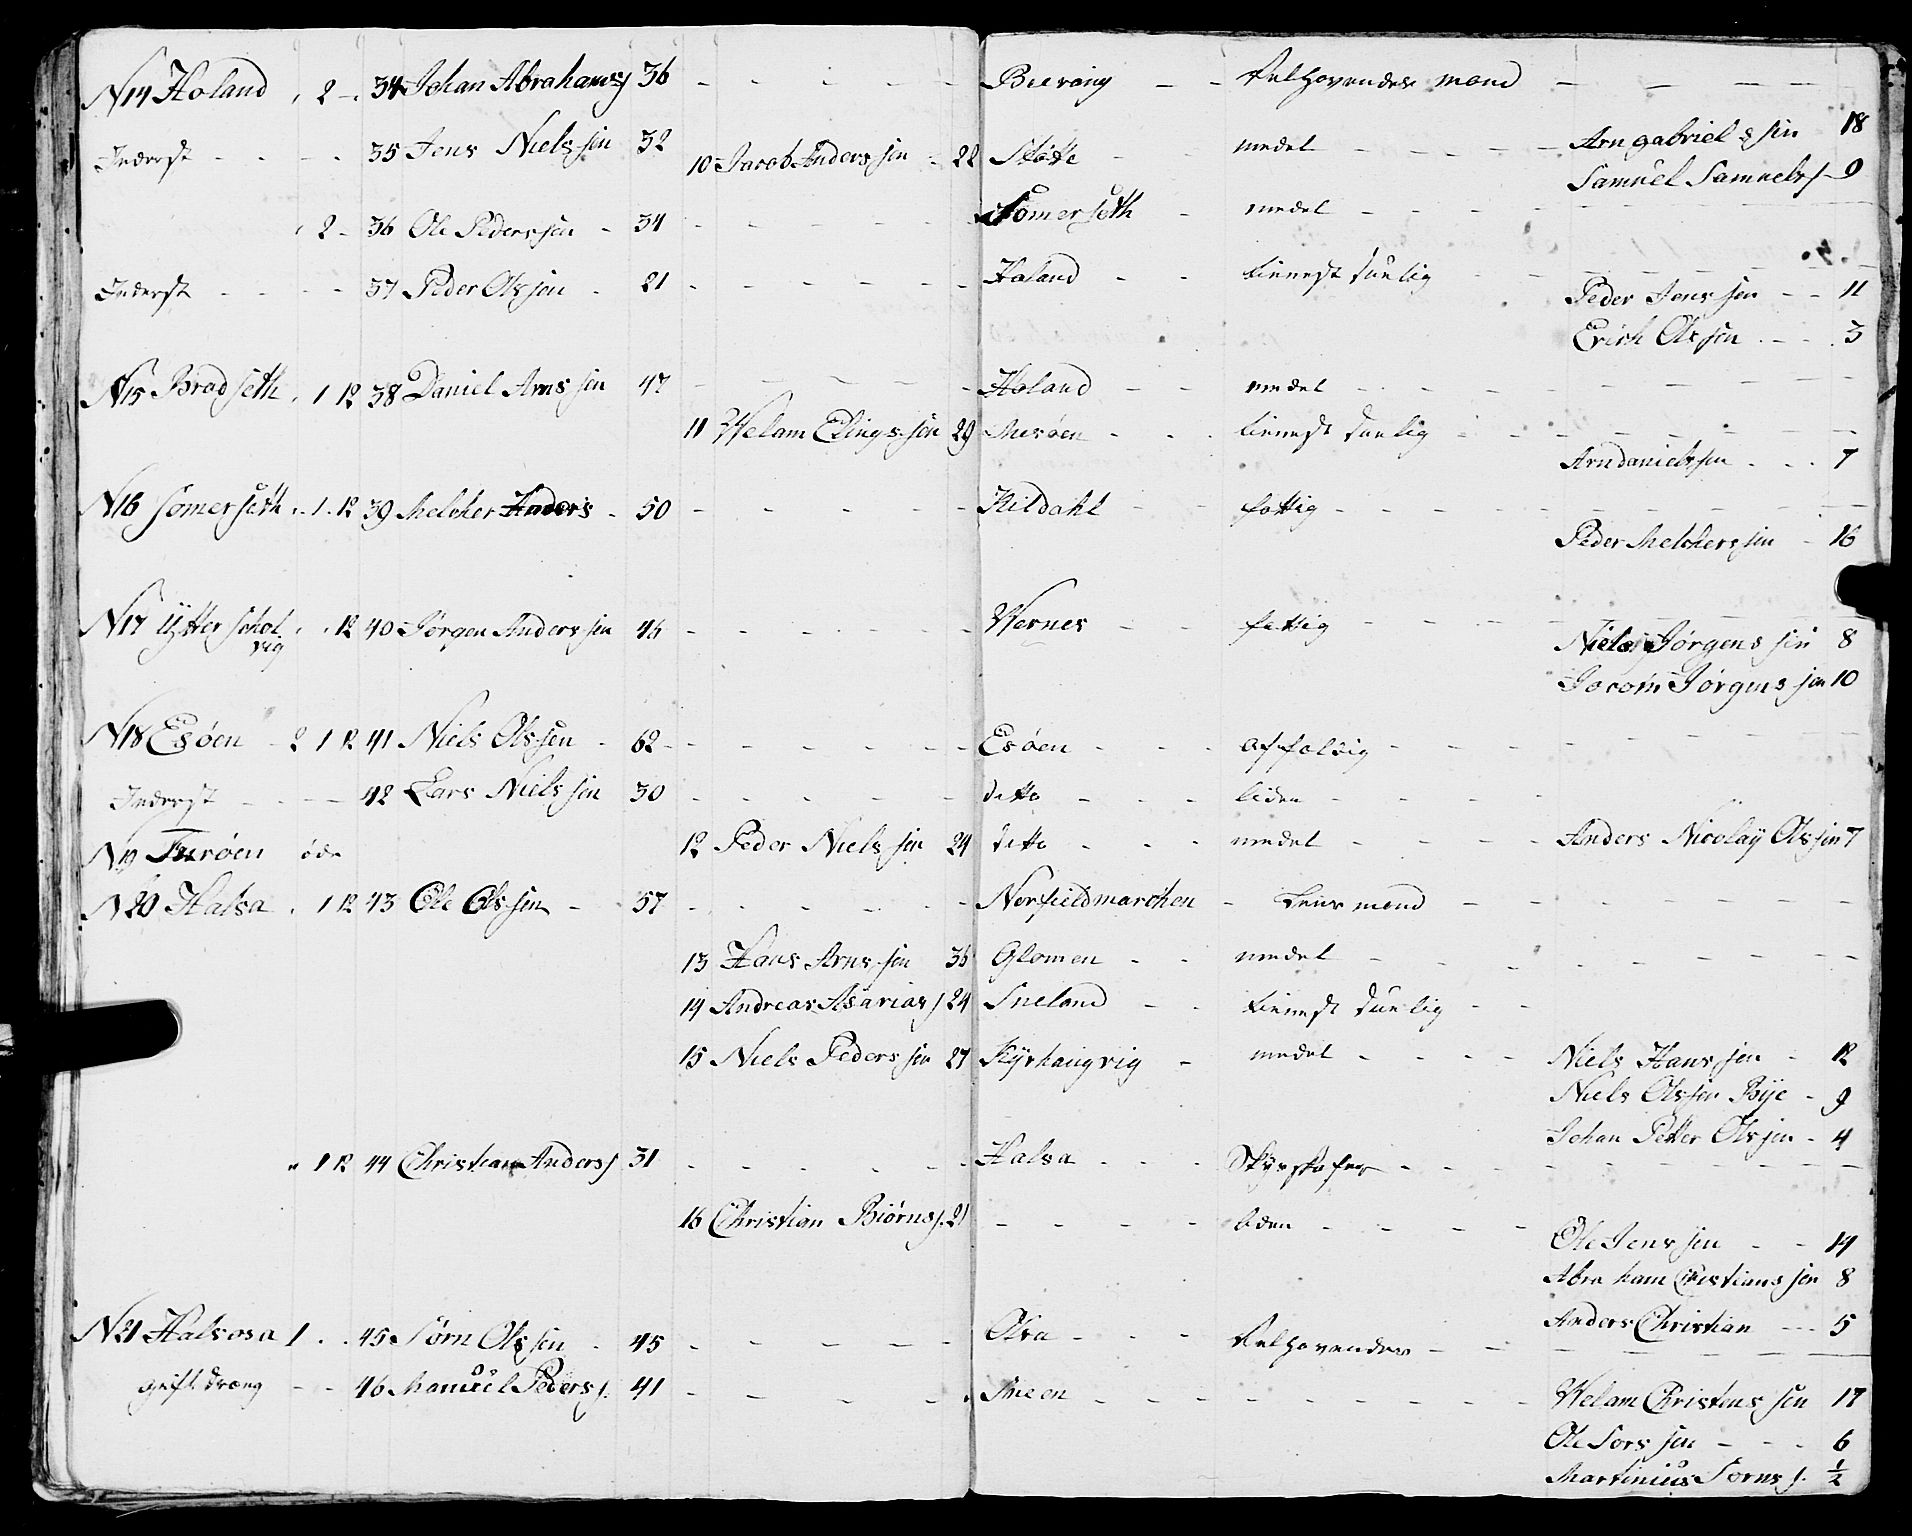 N14 Holand 2 - 34 Johan Abrahams 36 Bierang Velhavendes mand
Inderst 35 Jens Nielssen 32 10 Jacob Anderssen 22 Støtte medel Arn gabrielssen 18
Samuel Samuels 9
2 - 36 Ole Pederssen 34 Somerseth medel
Inderst 37 Peder Olssen 21 Holand tienest duelig Peder Jenssen 11
Erich Olssen 3
N15 Bradseth 1 12 38 Daniel Arnssen 47 Holand medel
11 Welam Elingssen 29 Mesøen tienest duelig
Arn danielssen 7
N16 Somerseth 1 12 39 Melcher Anders 50 Kildahl fattig
Peder Melcherssen 16
N17 Ytter schol vig 12 40 Jørgen Anderssen 46 Wernes fattig
Niels Jørgenssen 8
Jocom Jørgenssen 10
N18 Esøen 2 1 12 41 Niels Olssen 62 Esøen affoldig
Inderst 42 Lars Nielssen 30 ditto liden
N19 Turøen øde 12 Peder Nielssen 24 ditto medel Anders Nicolaÿ Olssen 7
N20 Halsa 1 12 43 Ole Olssen 57 Norfieldmarchen Leens mand
13 Hans Arnssen 36 Glomen medel
14 Andreas Asarias 24 Sneland tienest duelig
15 Niels Pederssen 27 Kÿrhaugvig medel Niels Hanssen 12
Niels Olssen Bÿe 9
Johan Petter Olssen 4
1 12 44 Christian Anders 31 Halsa Skyds skafer
16 Christian Biørns 21 liden
Ole Jenssen 14
Abraham Christianssen 8
Anders Christian 5
N21 Halsosa 1 45 Sørn Olssen 45 Olva Velhavendes
gift dræng 46 Manuel Peders 41 Sneen Welam Christenssen 17
Ole Sorssen 6
Martinius Sorns 1/2